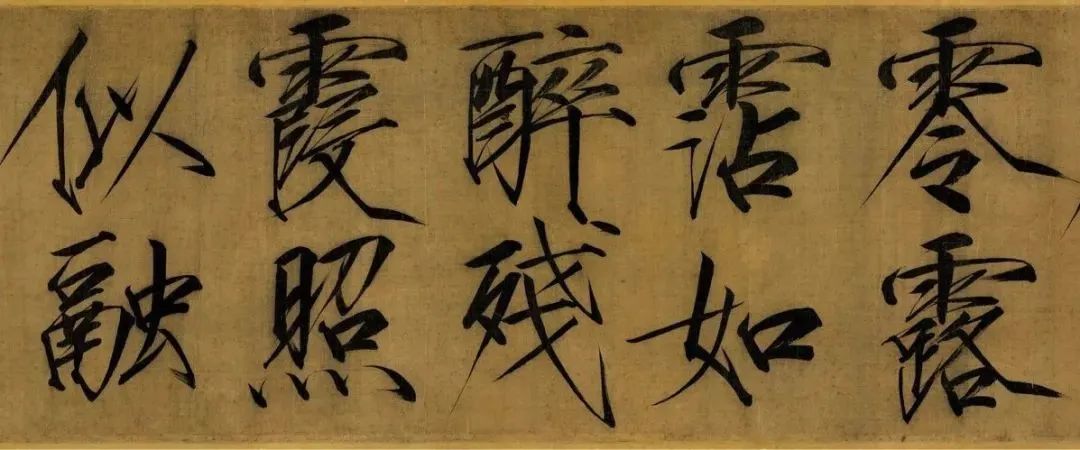 零露
霑如
醉残
霞照
似融